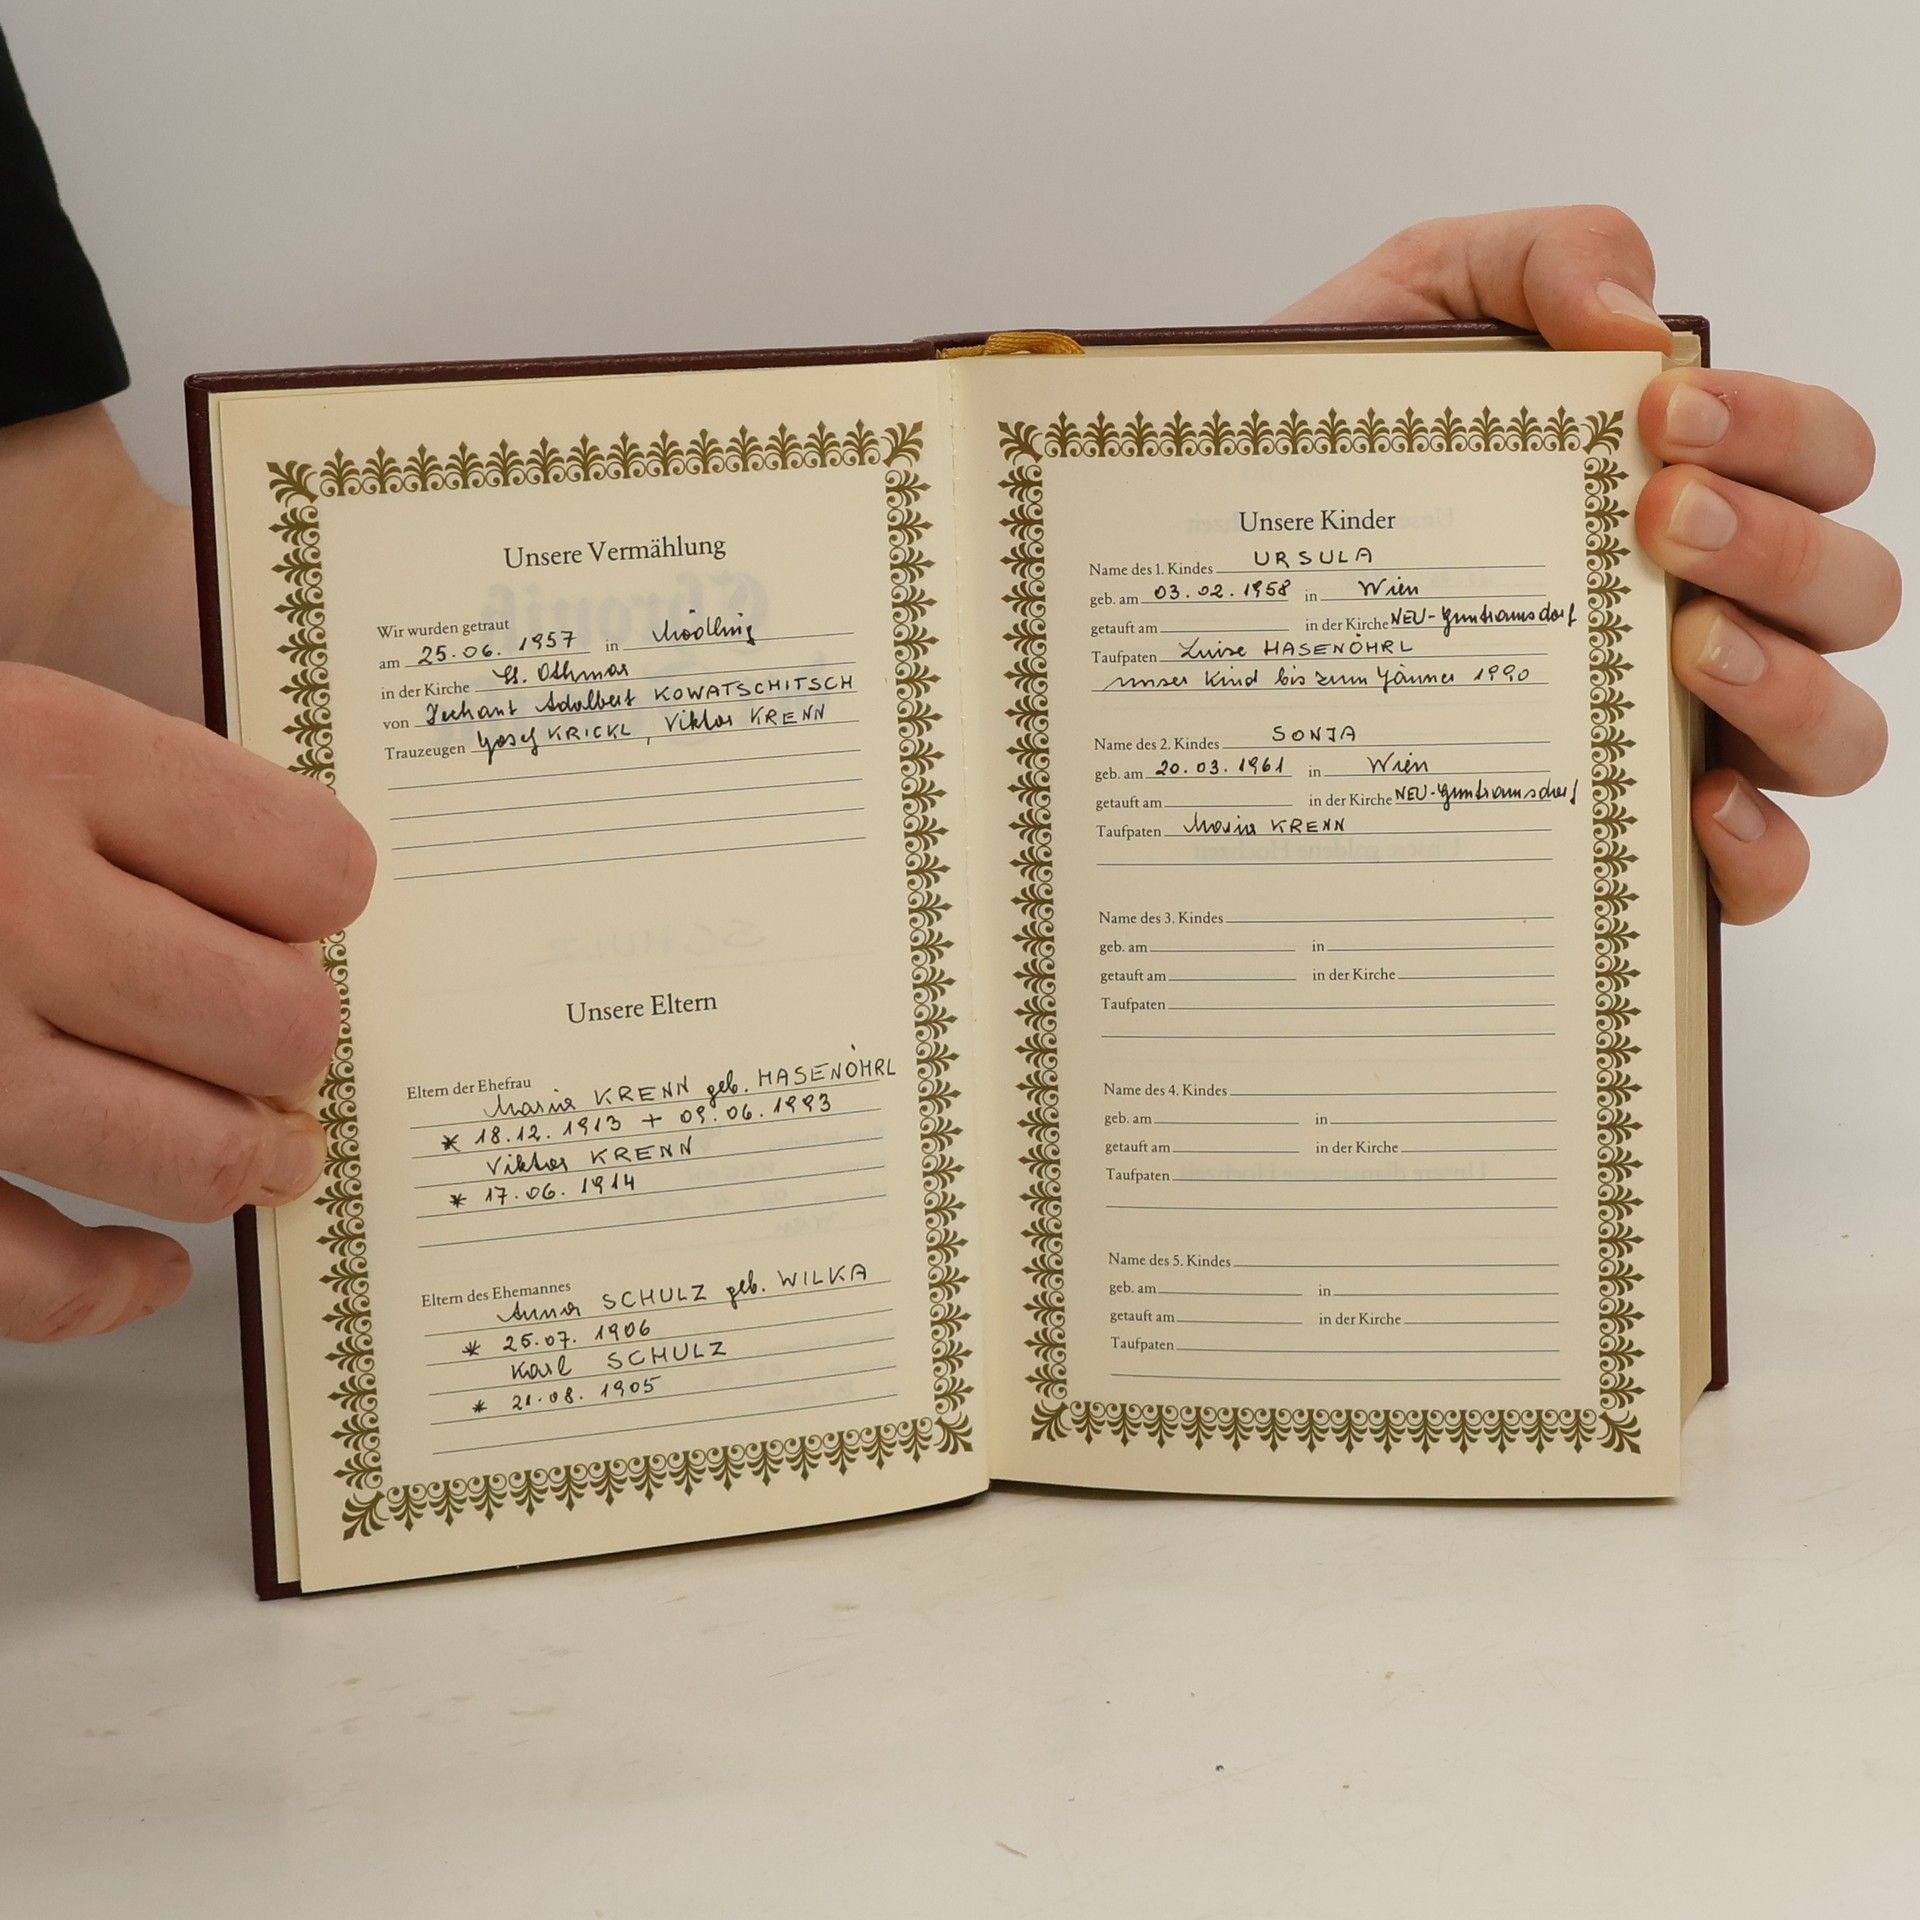 Unsere Vermählung
Wir wurden getraut
am 25.06.1957 in Mödling
in der Kirche St. Othmar
von Dechant Adalbert KOWATSCHITSCH
Trauzeugen Josef KRICKL, Viktor KRENN
Unsere Eltern
Eltern der Ehefrau
Maria KRENN geb. HASENÖHRL
* 18.12.1913 + 09.06.1993
Viktor KRENN
* 17.06.1914
Eltern des Ehemannes
Anna SCHULZ geb. WILKA
* 25.07.1906
Karl SCHULZ
* 21.08.1905
Unsere Kinder
Name des 1. Kindes URSULA
geb. am 03.02.1958 in Wien
getauft am in der Kirche NEU-Guntramsdorf
Taufpaten Luise HASENÖHRL
unser Kind bis zum Jänner 1990
Name des 2. Kindes SONJA
geb. am 20.03.1961 in Wien
getauft am in der Kirche NEU-Guntramsdorf
Taufpaten Maria KRENN
Name des 3. Kindes
geb. am in
getauft am in der Kirche
Taufpaten
Name des 4. Kindes
geb. am in
getauft am in der Kirche
Taufpaten
Name des 5. Kindes
geb. am in
getauft am in der Kirche
Taufpaten